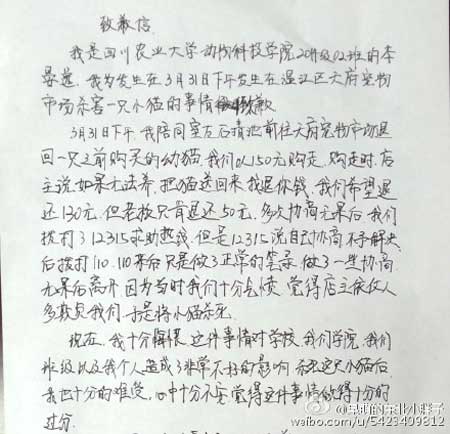 致歉信
我是四川农业大学动物科技学院2011级02班的李
我为发生在3月31日下午发生在温江区天府宠物
市场杀害一只小猫的事情做出致歉
3月31日下午,我陪同室友石倩池前往天府宠物市场退
回一只之前购买的幼猫,我们以150元购走,购走时,店
主说,如果无法养,把猫送回来,我退你钱,我们希望退
还130元,但老板只肯退还50元,多次协商无果后,我们
拨打了12315求助热线,但是12315说自动协商,不予解决,
后拨打110,110来后只是做了正常的笔录,做了一些协商
无果后离开,因为当时我们十分气愤,觉得店主依仗人
多欺负我们,于是将小猫杀死
现在,我十分悔恨,这件事情对学校,我们学院,我们
班级以及我个人造成了非常不好的影响,杀死这只小猫后,
我也十分的难受,心中十分不安,觉得这件事情做得十分的
过分.
weibo.com/u/5423409312